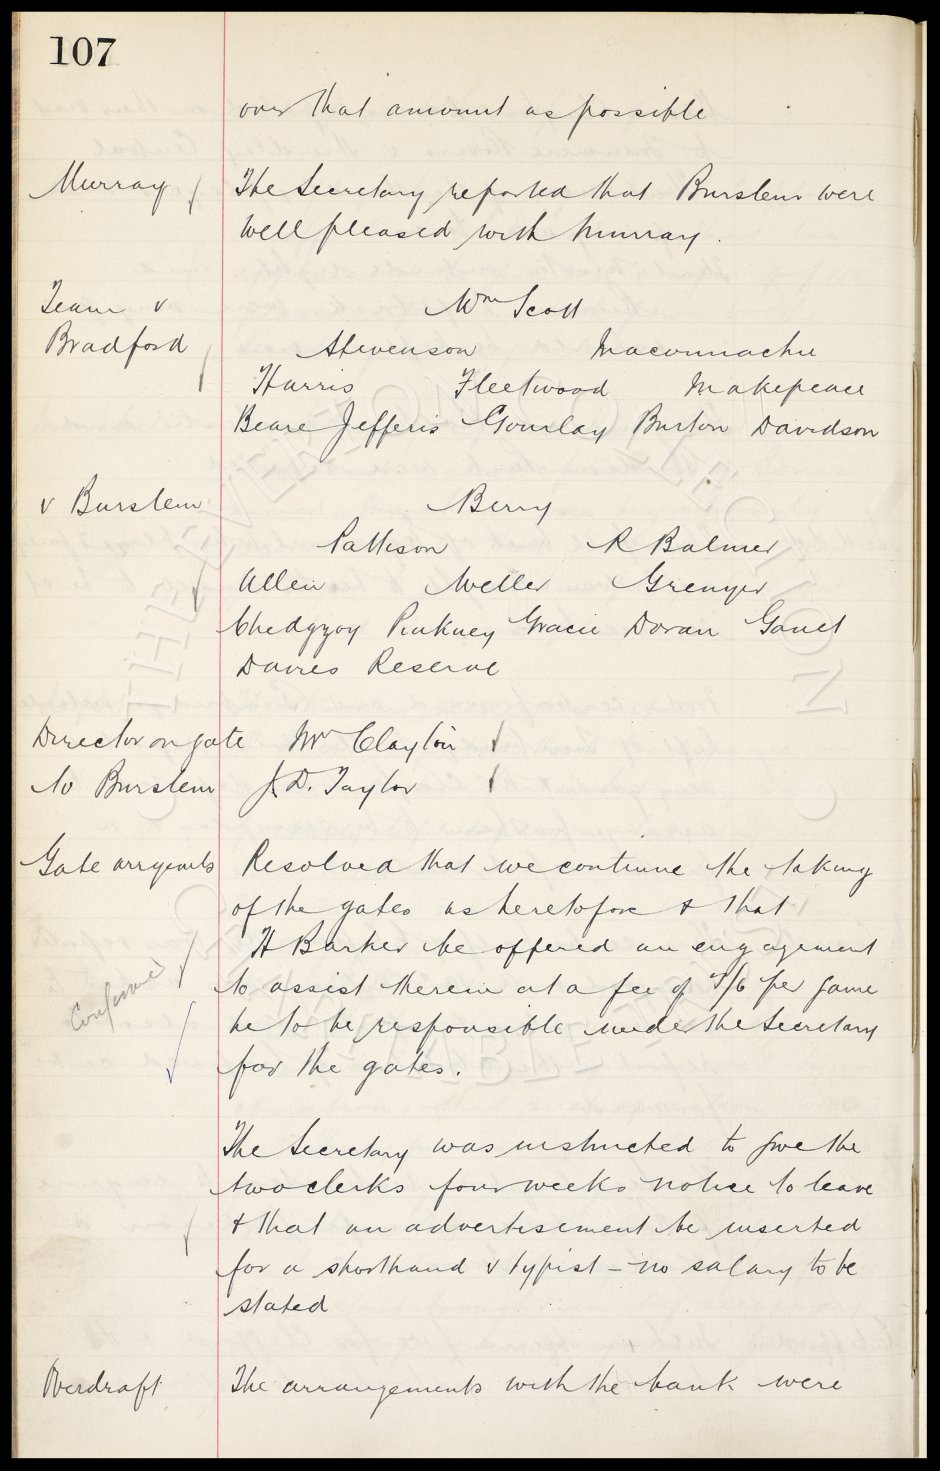 107
over that amount as possible
Murray
The Secretary reported that Burslem were
well pleased with Murray.
Team v
Bradford
Wm Scott
Stevenson Maconnachie
Harris Fleetwood Makepeace
Beare Jefferis Gourlay Burton Davidson
v Burslem
Berry
Pattison R Balmer
Allen Weller Grenyer
Chedgzoy Pinkney Gracie Doran Gault
Davies Reserve
Director on gate Mr Clayton
to Burslem J.D. Taylor
Gate arrgemts
Resolved that we continue the taking
of the gates as heretofore & that
H Barker be offered an engagement
to assist therein at a fee of 7/6 per game
he to be responsible under the Secretary
for the gates.
The Secretary was instructed to give the
two clerks four weeks notice to leave
& that an advertisement be inserted
for a shorthand & typist - no salary to be
stated
Overdraft
The arrangements with the bank were